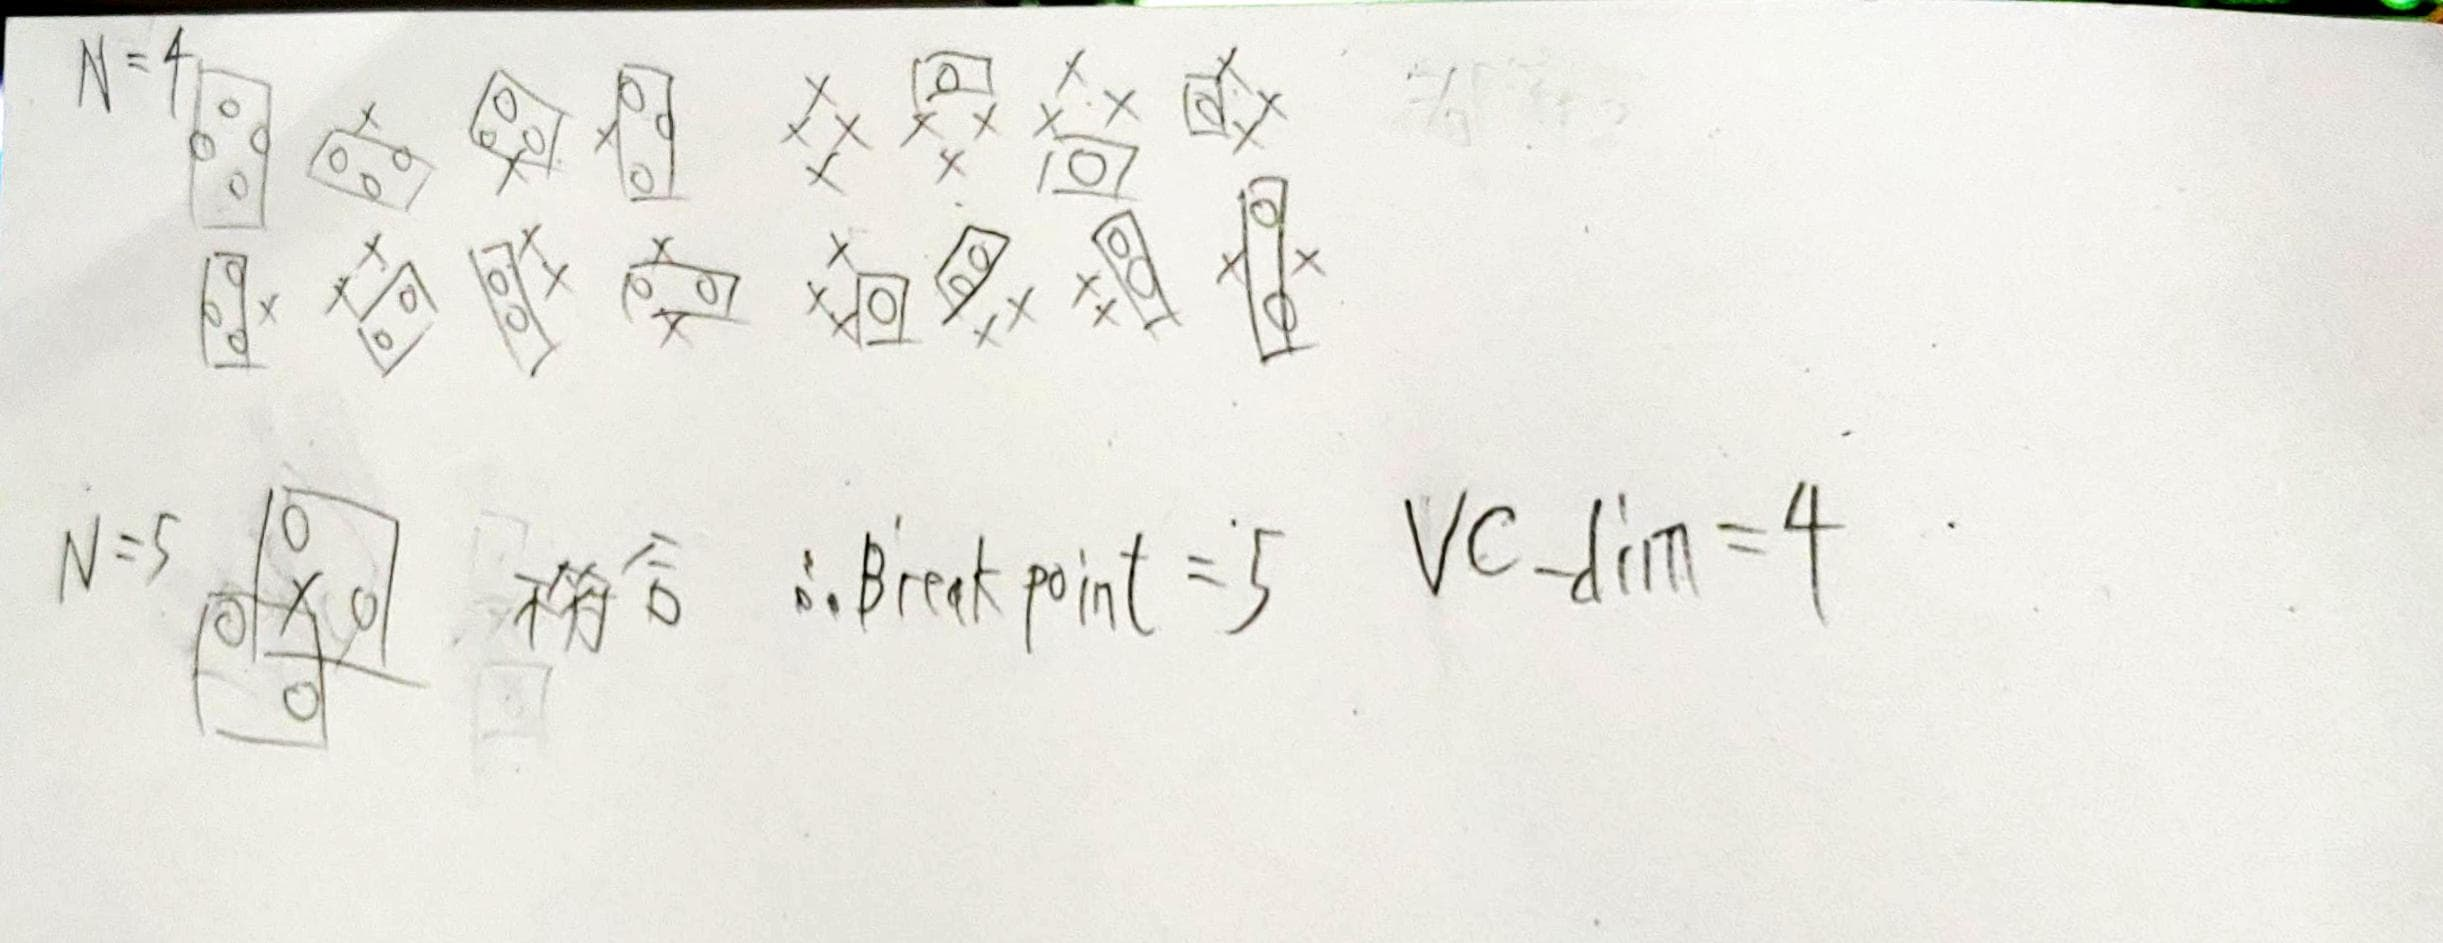 N=4
N=5 不符合 ∴ Break point = 5 VC_dim = 4